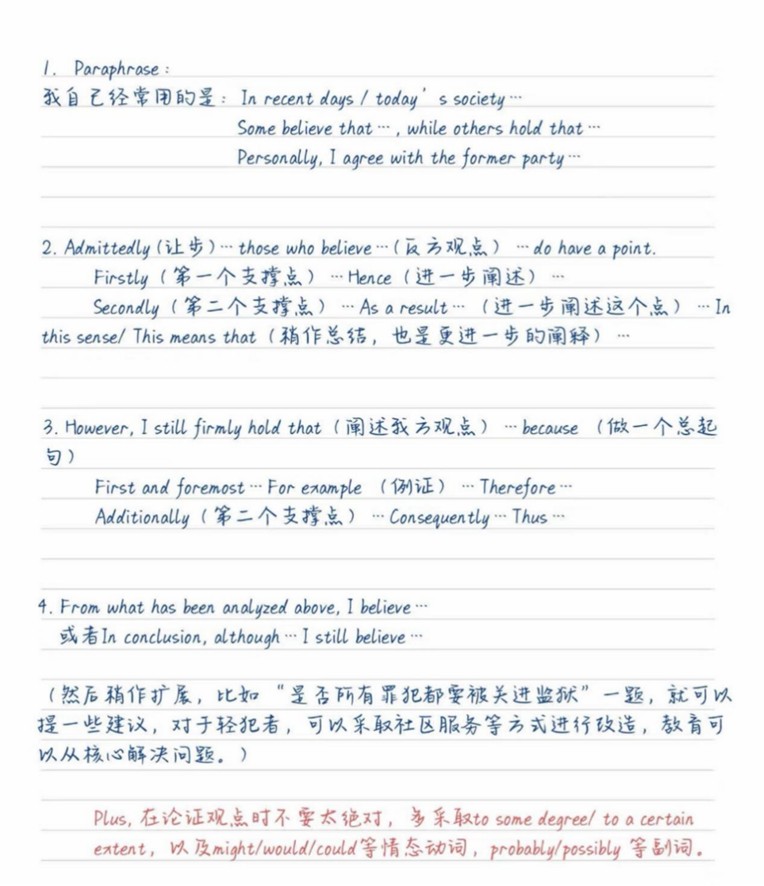 1. Paraphrase：
我自己经常用的是：In recent days / today's society…
Some believe that…, while others hold that…
Personally, I agree with the former party…
2. Admittedly（让步）… those who believe…（反方观点）…do have a point.
Firstly（第一个支撑点）…Hence（进一步阐述）…
Secondly（第二个支撑点）…As a result…（进一步阐述这个点）…In
this sense/ This means that（稍作总结，也是更进一步的阐释）…
3. However, I still firmly hold that（阐述我方观点）…because（做一个总起
句）
First and foremost…For example（例证）…Therefore…
Additionally（第二个支撑点）…Consequently…Thus…
4. From what has been analyzed above, I believe…
或者In conclusion, although…I still believe…
（然后稍作扩展，比如“是否所有罪犯都要被关进监狱”一题，就可以
提一些建议，对于轻犯者，可以采取社区服务等方式进行改造，教育可
以从核心解决问题。）
Plus, 在论证观点时不要太绝对，多采取to some degree/ to a certain
extent，以及might/would/could等情态动词，probably/possibly 等副词。